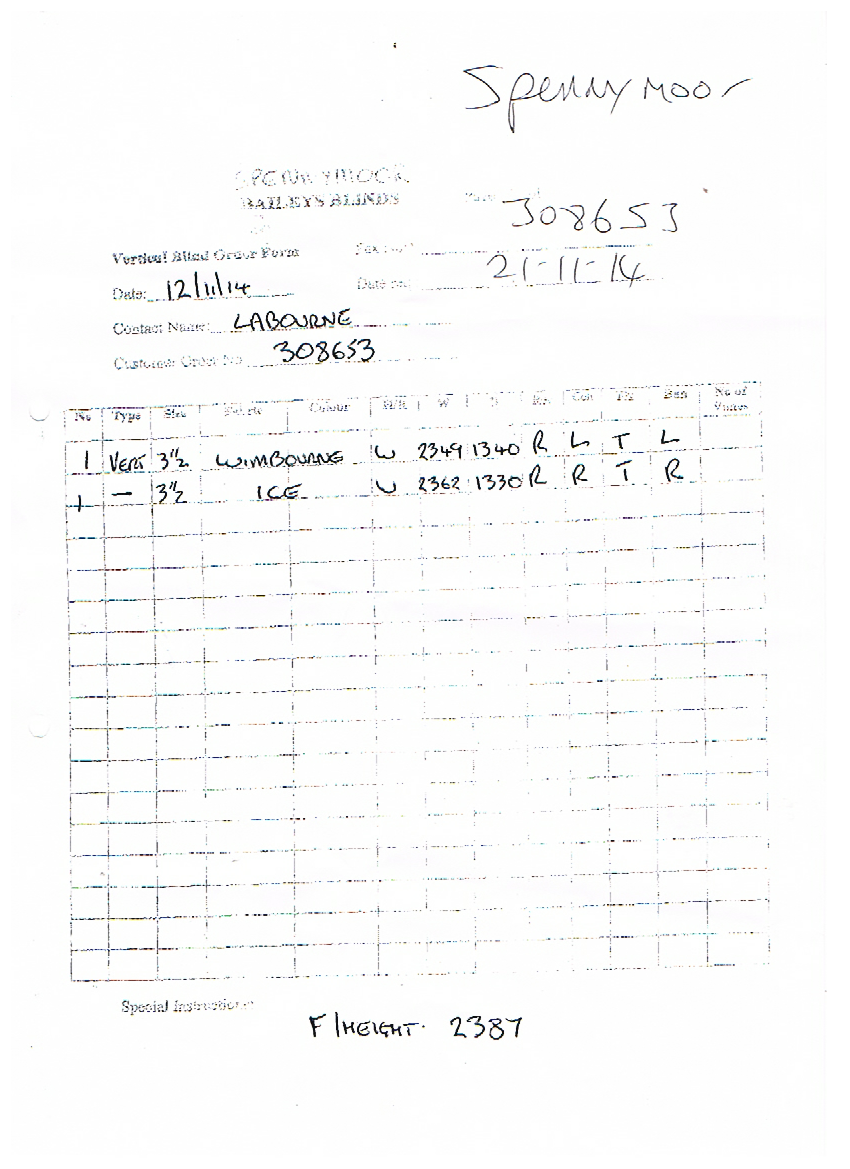 Spennymoor
SPENNYMOOR
BAILEYS BLINDS
308653
Vertical Blind Order Form
21-11-14
Date: 12/11/14
Contact Name: LABOURNE
Customer Order No 308653
No Type Size Colour W No of
1 VERT 3½" WIMBOURNE W 2349 1340 R L T L
1 — 3½" ICE W 2362 1330 R R T R
Special Instructions
F/HEIGHT. 2387